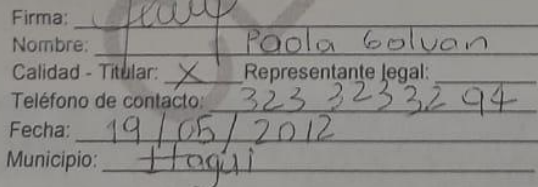 Firma:
Nombre: Paola Golvan
Calidad - Titular: X Representante legal:
Teléfono de contacto: 323 323 32 94
Fecha: 19/05/2012
Municipio: Itagui